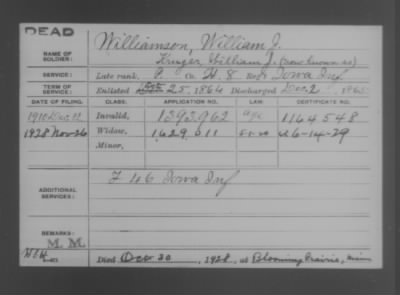 DEAD
NAME OF SOLDIER: Williamson, William J.
Kruger, William J. (now known as)
SERVICE: Late rank, P. Co. H. 8 Reg't Iowa Inf
TERM OF SERVICE: Enlisted 25, 1864 Discharged Dec. 2, 1865
DATE OF FILING. CLASS. APPLICATION NO. LAW. CERTIFICATE NO.
1910 Invalid, 1393962 age 1164548
1928 Nov 26 Widow, 1629011 6-14-29
Minor,
ADDITIONAL SERVICES: F 46 Iowa Inf
REMARKS:
M. M.
Died 30, 1928, at Blooming Prairie, Minn